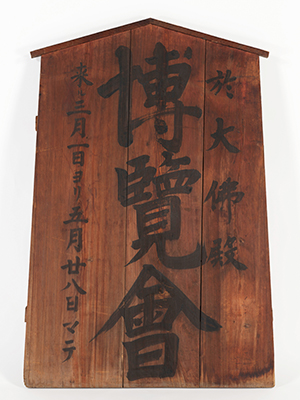 於大佛殿
博覽會
来三月一日ヨリ五月廿八日マテ